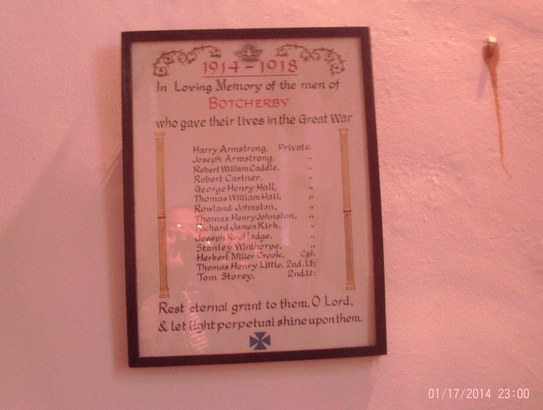 1914-1918
In Loving Memory of the men of
BOTCHERBY
who gave their lives in the Great War
Harry Armstrong, Private.
Joseph Armstrong, "
Robert William Caddle, "
Robert Cartner, "
George Henry Hall, "
Thomas William Hall, "
Rowland Johnston, "
Thomas Henry Johnston, "
Richard James Kirk, "
Joseph Routledge, "
Stanley Winthorpe, "
Herbert Miller Crook, Cpl.
Thomas Henry Little, 2nd.Lt:
Tom Storey, 2nd.Lt:
Rest eternal grant to them, O Lord,
& let light perpetual shine upon them.
01/17/2014 23:00